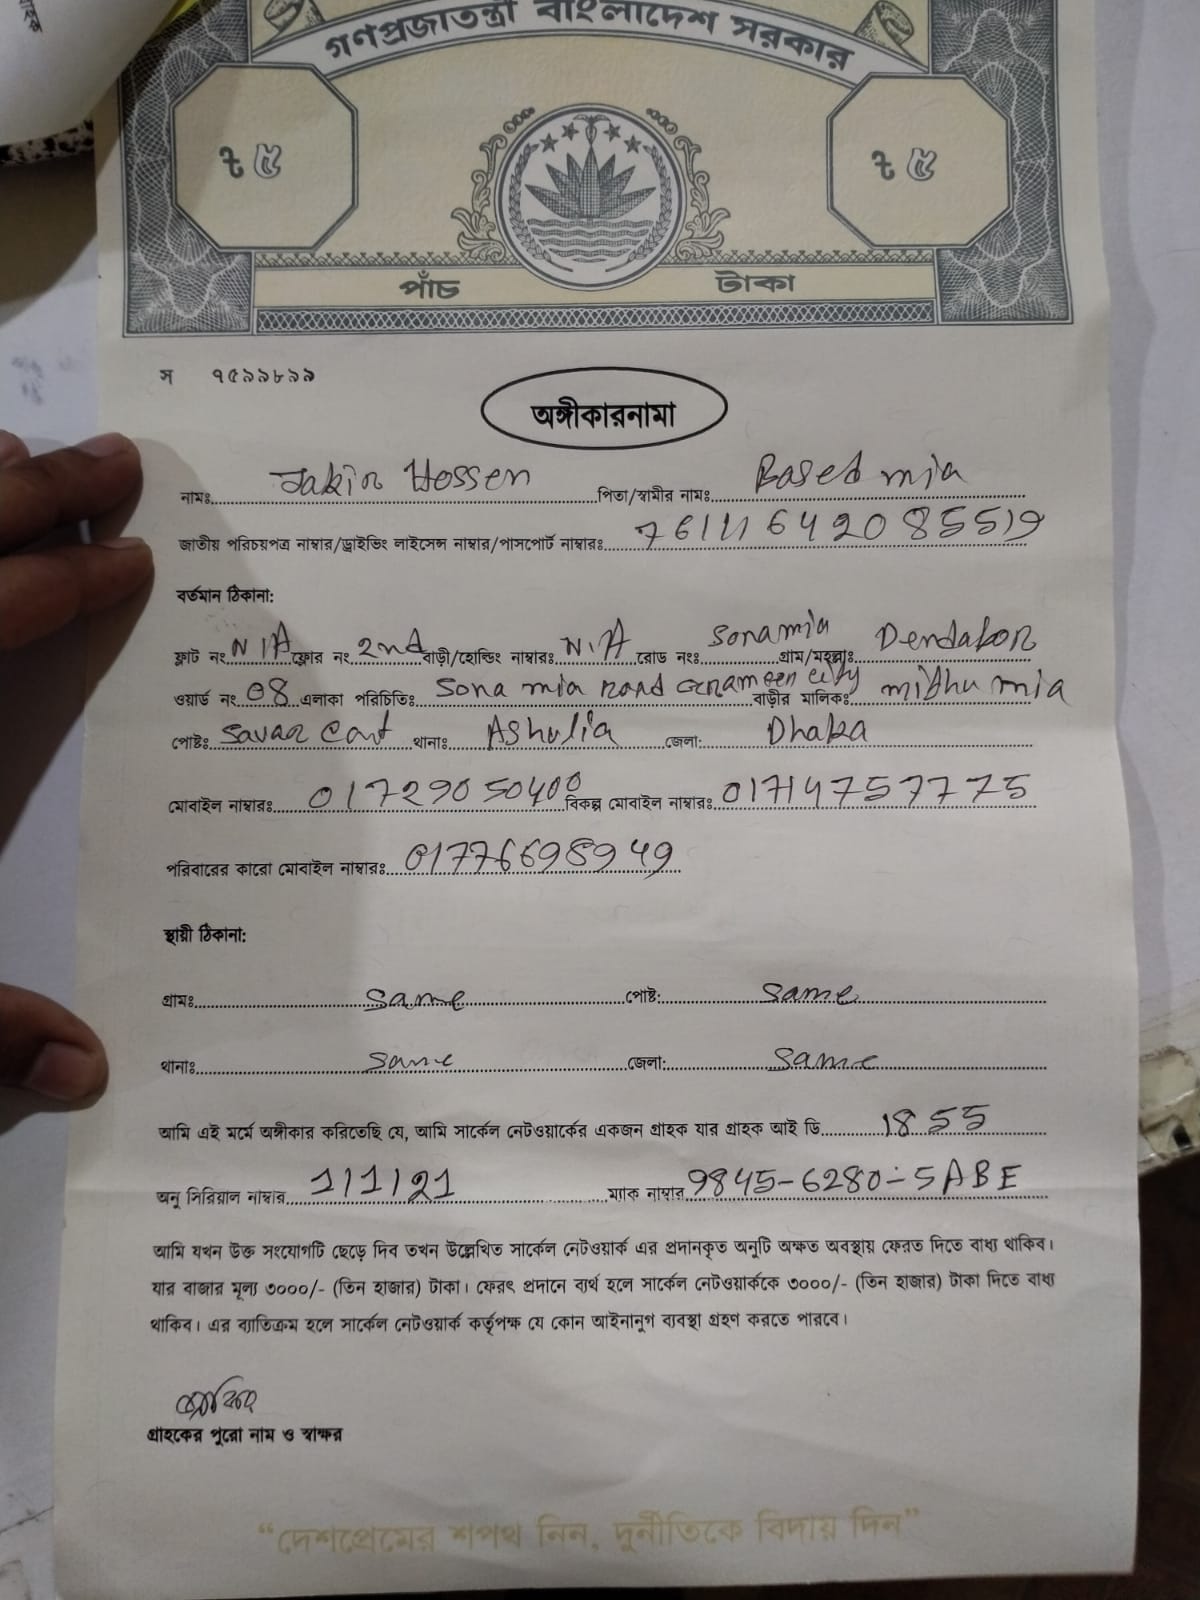 গণপ্রজাতন্ত্রী বাংলাদেশ সরকার
৳ ৫ ৳ ৫
পাঁচ টাকা
স ৭৫৯৯৮৯৯
অঙ্গীকারনামা
নামঃ Jakir Hossen পিতা/স্বামীর নামঃ Based mia
জাতীয় পরিচয়পত্র নাম্বার/ড্রাইভিং লাইসেন্স নাম্বার/পাসপোর্ট নাম্বারঃ
বর্তমান ঠিকানা:
ফ্লাট নং N/A ফ্লোর নং 2nd বাড়ী/হোল্ডিং নাম্বারঃ N/A রোড নংঃ Sonamia গ্রাম/মহল্লাঃ Dendabor
ওয়ার্ড নং 08 এলাকা পরিচিতিঃ Sona mia road Grameen city বাড়ীর মালিকঃ midhu mia
পোষ্টঃ Savar Cant থানাঃ Ashulia জেলা: Dhaka
মোবাইল নাম্বারঃ 01729050400 বিকল্প মোবাইল নাম্বারঃ 01714757775
পরিবারের কারো মোবাইল নাম্বারঃ 01776698949
স্থায়ী ঠিকানা:
গ্রামঃ same পোষ্ট: same
থানাঃ same জেলা: same
আমি এই মর্মে অঙ্গীকার করিতেছি যে, আমি সার্কেল নেটওয়ার্কের একজন গ্রাহক যার গ্রাহক আই ডি 1855
অনু সিরিয়াল নাম্বার 1/1/21 ম্যাক নাম্বার 9845-6280-5ABE
আমি যখন উক্ত সংযোগটি ছেড়ে দিব তখন উল্লেখিত সার্কেল নেটওয়ার্ক এর প্রদানকৃত অনুটি অক্ষত অবস্থায় ফেরত দিতে বাধ্য থাকিব।
যার বাজার মূল্য ৩০০০/- (তিন হাজার) টাকা। ফেরৎ প্রদানে ব্যর্থ হলে সার্কেল নেটওয়ার্ককে ৩০০০/- (তিন হাজার) টাকা দিতে বাধ্য
থাকিব। এর ব্যতিক্রম হলে সার্কেল নেটওয়ার্ক কর্তৃপক্ষ যে কোন আইনানুগ ব্যবস্থা গ্রহণ করতে পারবে।
গ্রাহকের পুরো নাম ও স্বাক্ষর
“দেশপ্রেমের শপথ নিন, দুর্নীতিকে বিদায় দিন”